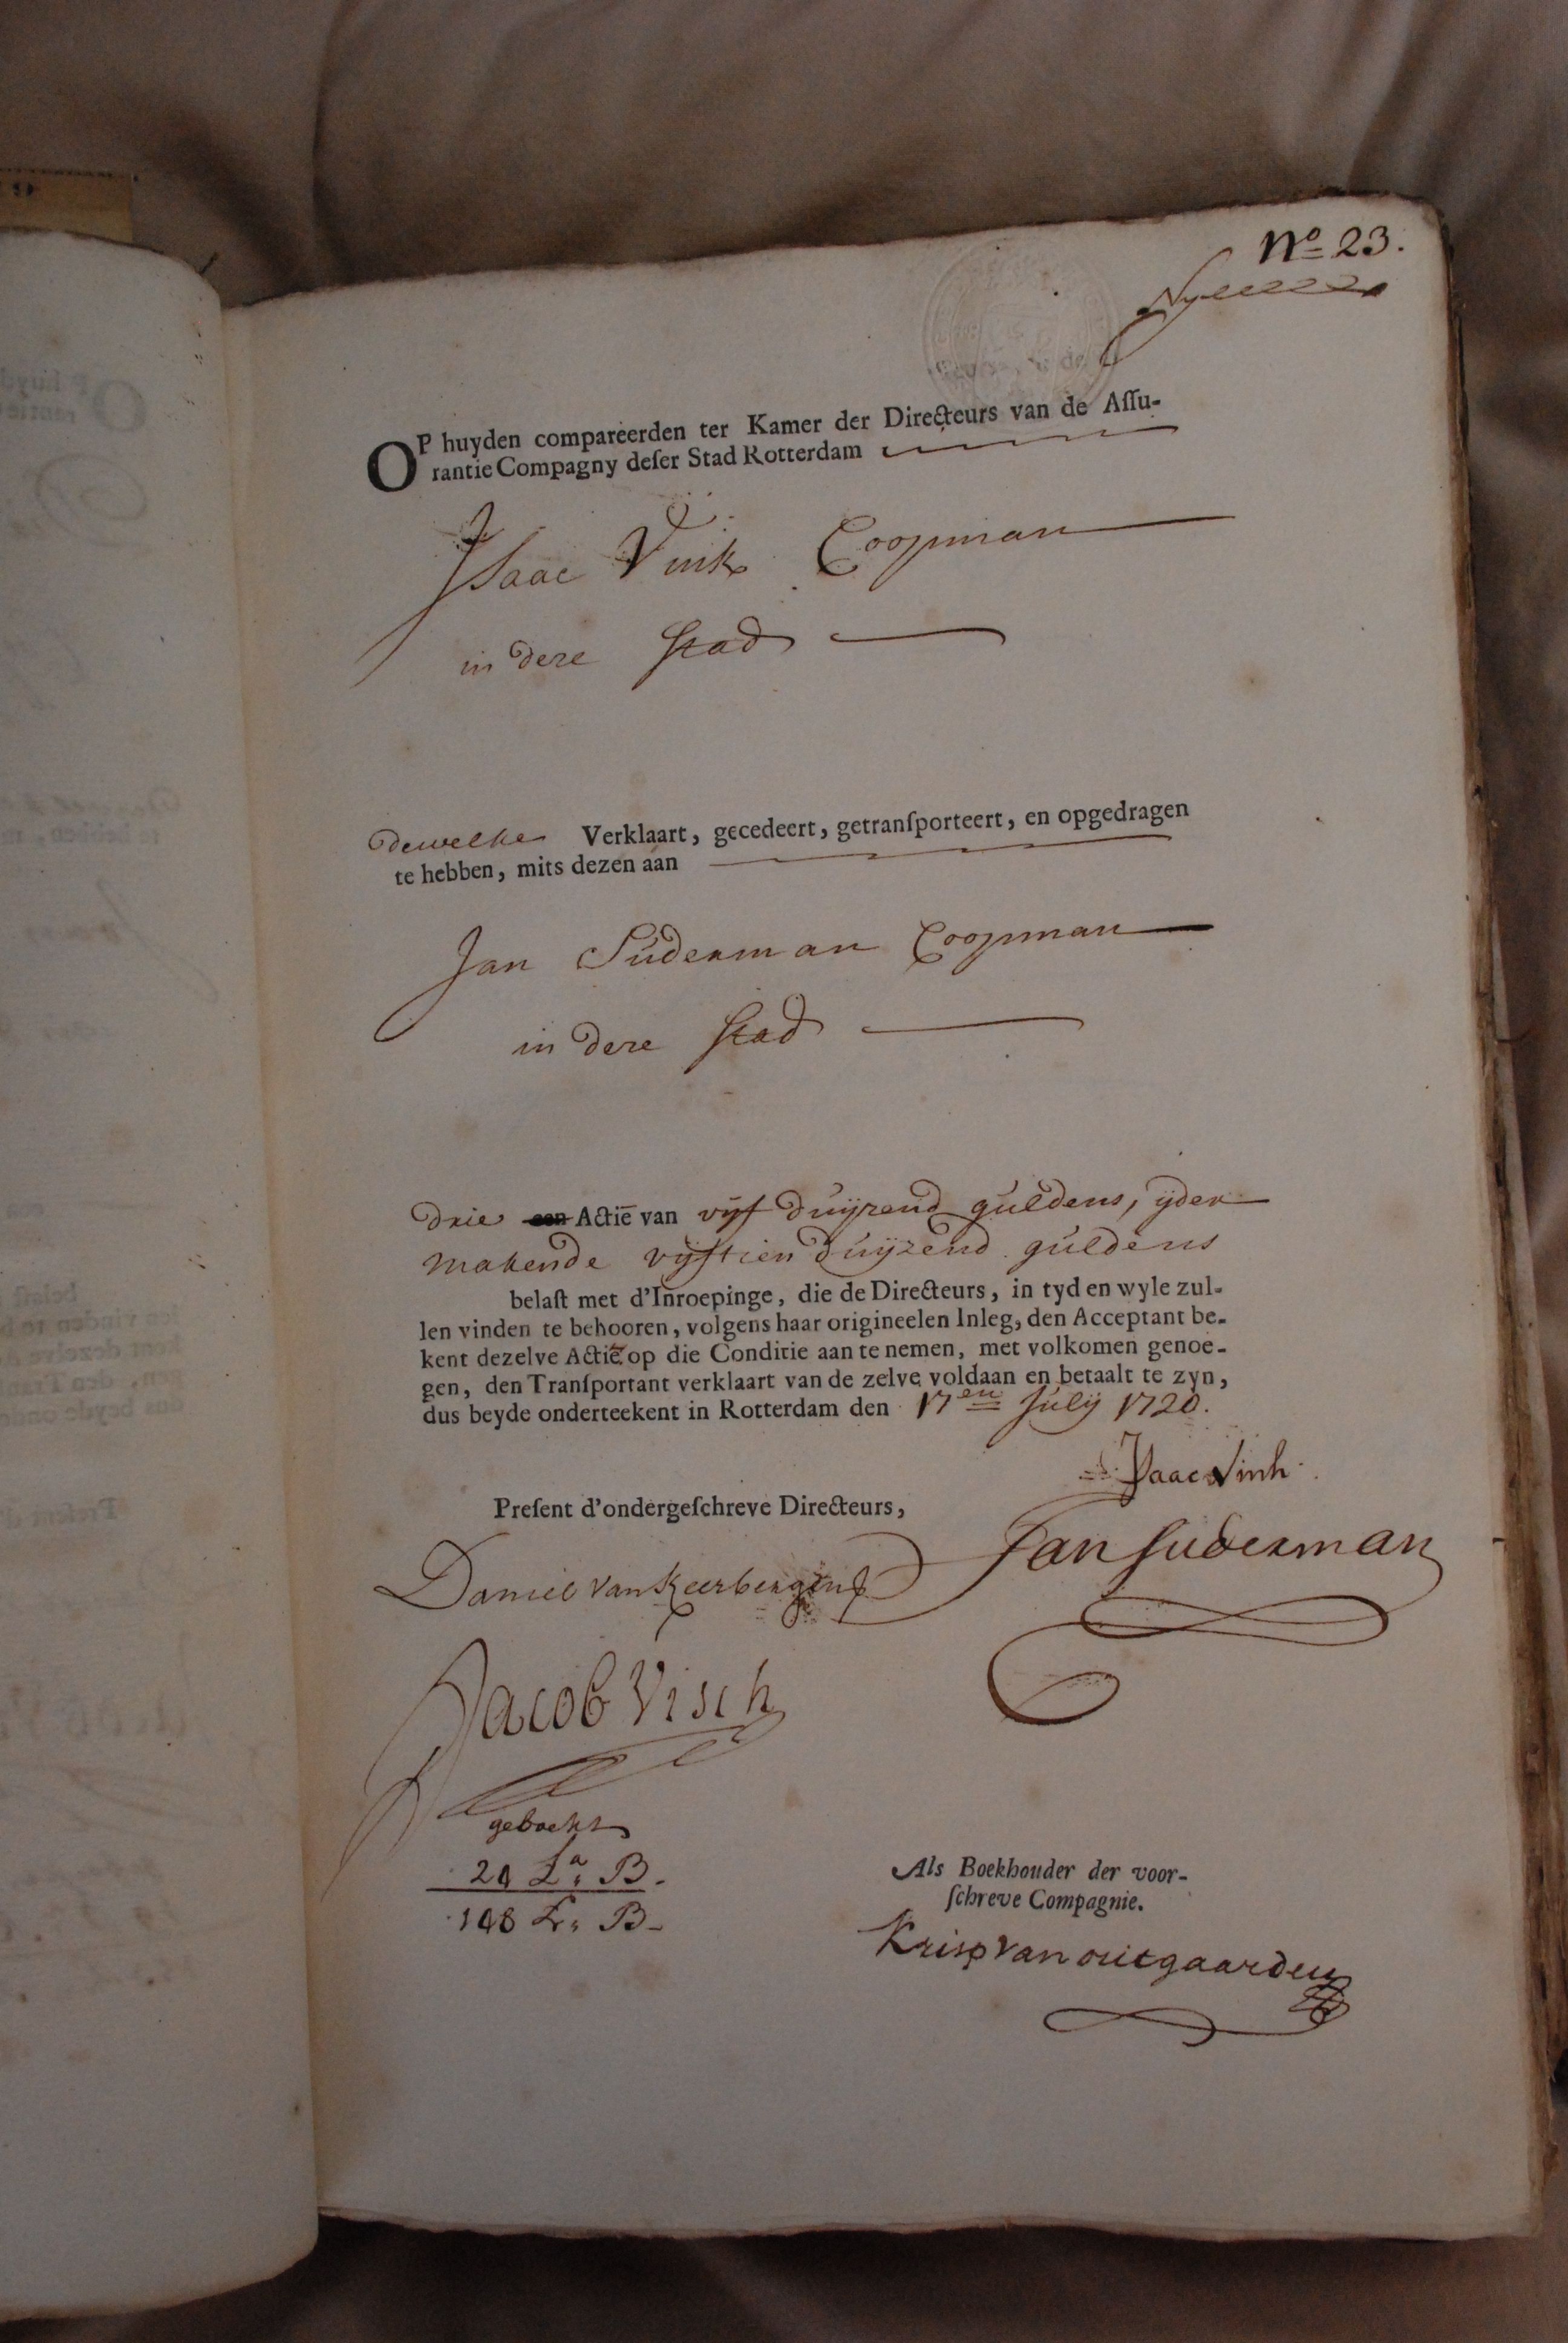 No 23.
OP huyden compareerden ter Kamer der Directeurs van de Aſſu-
rantie Compagny deſer Stad Rotterdam
Isaac Vink Coopman
in dere Stad
dewelke Verklaart, gecedeert, getranſporteert, en opgedragen
te hebben, mits dezen aan
Jan Suderman Coopman
in dere Stad
drie een Actie van vyf duyzend guldens, yder
makende vyftien duyzend guldens
belaſt met d'Inroepinge, die de Directeurs, in tyd en wyle zul-
len vinden te behooren, volgens haar origineelen Inleg, den Acceptant be-
kent dezelve Actie op die Conditie aan te nemen, met volkomen genoe-
gen, den Tranſportant verklaart van de zelve voldaan en betaalt te zyn,
dus beyde onderteekent in Rotterdam den 17en July 1720.
Isaac Vink
Preſent d'ondergeſchreve Directeurs,
Jan Suderman
Daniel van Keerbergen
Jacob Visch
geboekt
24 La B.
148 La B.
Als Boekhouder der voor-
ſchreve Compagnie.
Krisp van outgaarden